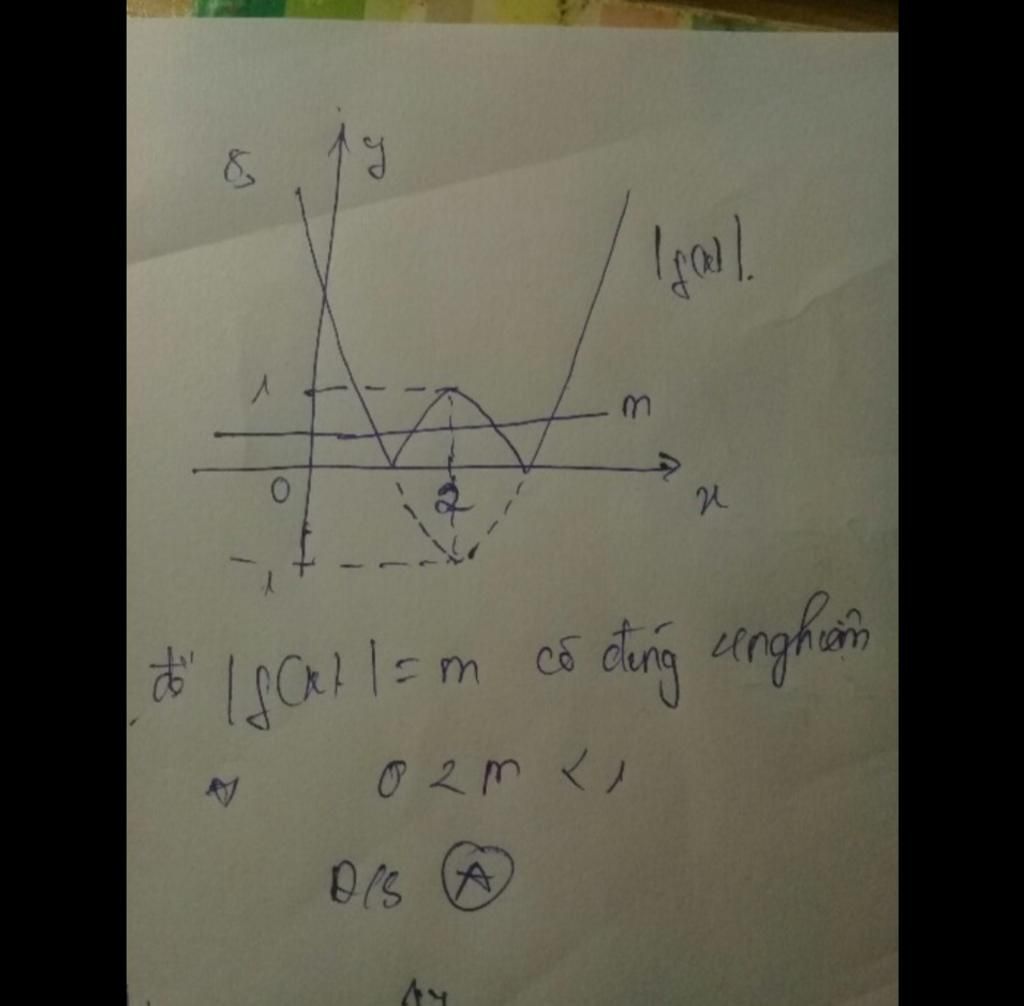 8,
y
|f(x)|.
1
m
0
2
x
-1
để |f(x)| = m có đúng 4 nghiệm
0 < m < 1
Đ/S A